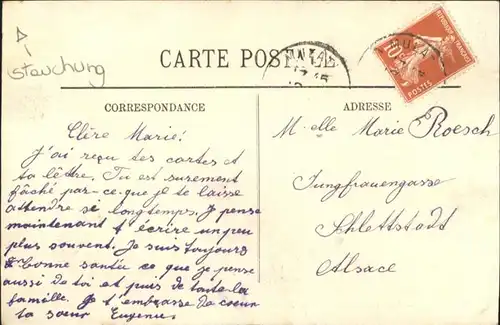 Stauchung
CARTE POSTALE
CORRESPONDANCE
Clère Marie!
J'ai reçu tes cartes et
ta lèttre. Tu est surement
fâché par-ce-que je te laisse
attendre si longtemps. Je pense
maintenant t'écrire un peu
plus souvent. Je suis toujours
bonne santée ce que je pense
aussi de toi et puis de toute la
famille. Je t'embrasse de coeur
ta soeur Eugenie.
ADRESSE
M-elle Marie Roesch
Jungfrauengasse
Schlettstadt
Alsace
10
POSTES